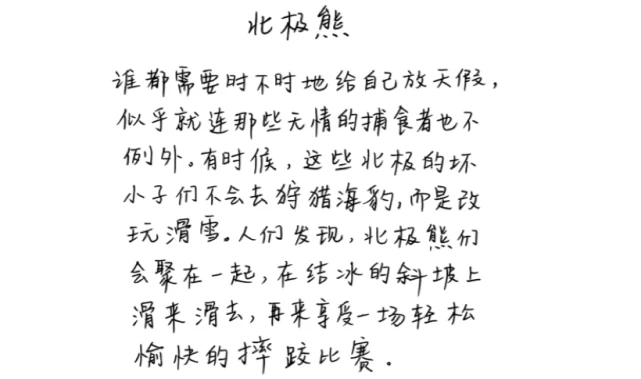 北极熊
谁都需要时不时地给自己放天假，
似乎就连那些无情的捕食者也不
例外。有时候，这些北极的坏
小子们不会去狩猎海豹，而是改
玩滑雪。人们发现，北极熊们
会聚在一起，在结冰的斜坡上
滑来滑去，再来享受一场轻松
愉快的摔跤比赛.